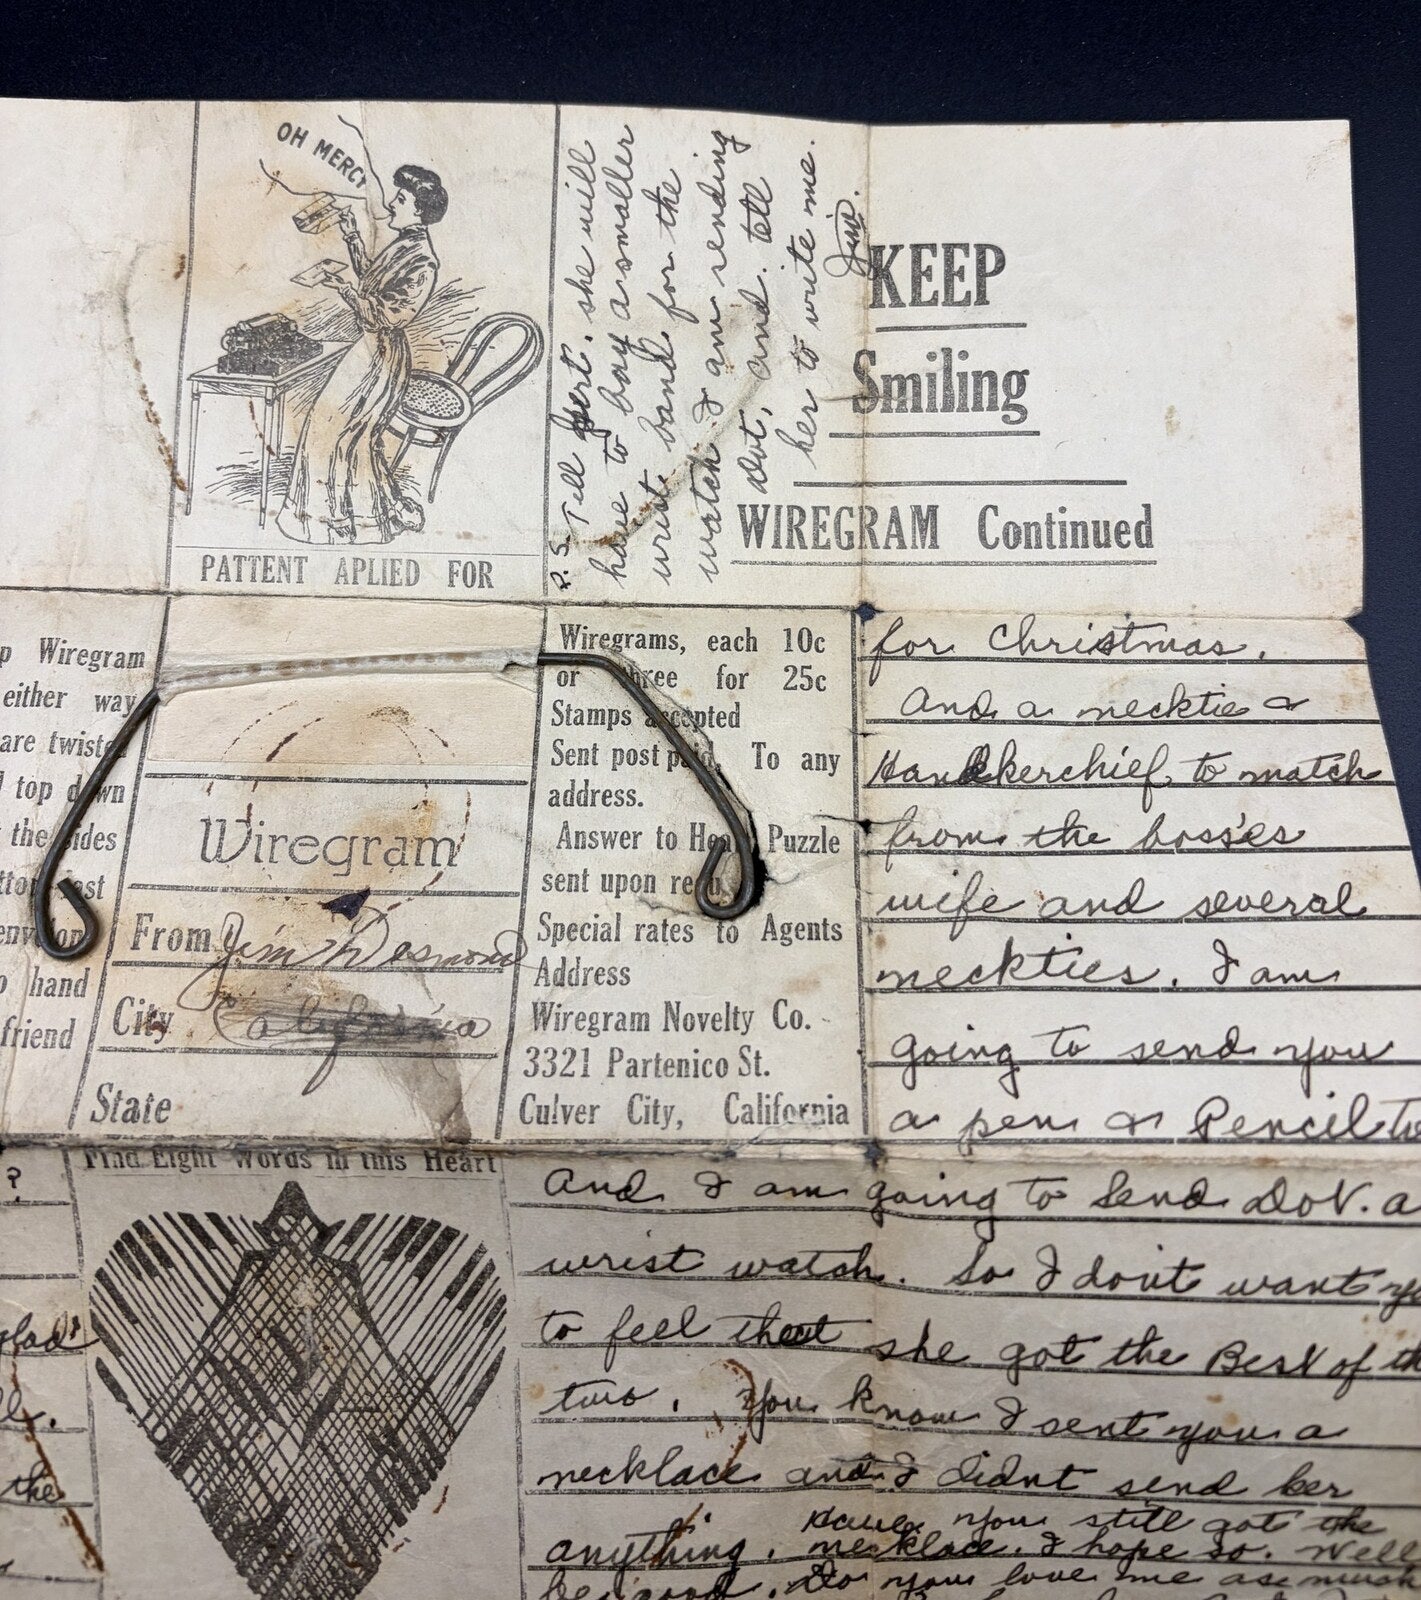 OH MERCY
PATTENT APLIED FOR
P.S. Tell Gert, she will
have to buy a smaller
wrist band for the
watch I am sending
Dot, and tell
her to write me.
Jim.
KEEP
Smiling
WIREGRAM Continued
p Wiregram
either way
are twisted
top down
the sides
hand
friend
Wiregram
From Jim Desmond
City California
State
Wiregrams, each 10c
or three for 25c
Stamps accepted
Sent post paid, To any
address.
Answer to Heart Puzzle
sent upon
Special rates to Agents
Address
Wiregram Novelty Co.
3321 Partenico St.
Culver City, California
for Christmas.
And a necktie &
Handkerchief to match
from the bosses
wife and several
neckties. I am
going to send you
a pen & Pencil to
?
glad
the
Find Eight Words in this Heart
And I am going to send Dot. a
wrist watch. So I dont want
to feel that she got the Best of
two. You know I sent you a
necklace and I didnt send her
anything. Have you still got the
necklace. I hope so. Well
be good. Do you love me as much